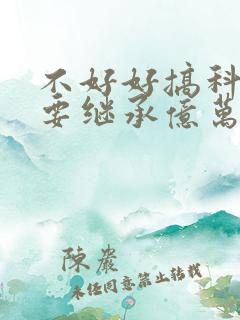 不好好搞科
要继承億萬
陳嚴
未经同意禁止转载